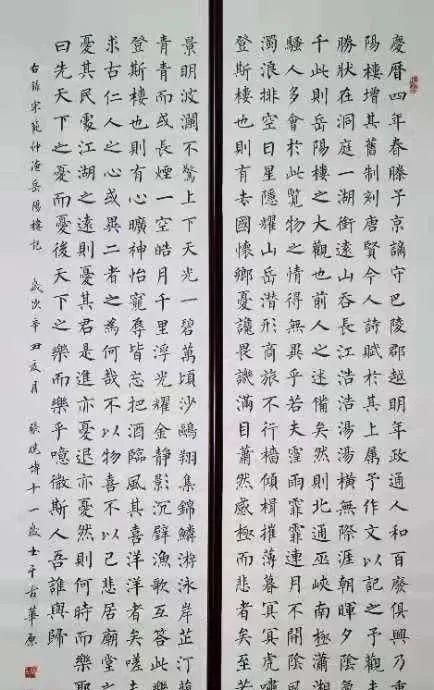 慶曆四年春滕子京謫守巴陵郡越明年政通人和百廢俱興乃
陽樓增其舊制刻唐賢今人詩賦於其上屬予作文以記之予觀
勝狀在洞庭一湖銜遠山吞長江浩浩湯湯橫無際涯朝暉夕陰氣
千此則岳陽樓之大觀也前人之述備矣然則北通巫峽南極瀟湘
騷人多會於此覽物之情得無異乎若夫霪雨霏霏連月不開陰風
濁浪排空日星隱耀山岳潛形商旅不行檣傾楫摧薄暮冥冥虎
登斯樓也則有去國懷鄉憂讒畏譏滿目蕭然感極而悲者矣若
景明波瀾不驚上下天光一碧萬頃沙鷗翔集錦鱗游泳岸芷汀蘭
青青而或長煙一空皓月千里浮光耀金靜影沉璧漁歌互答此樂
登斯樓也則有心曠神怡寵辱皆忘把酒臨風其喜洋洋者矣嗟夫
求古仁人之心或異二者之為何哉不以物喜不以己悲居廟堂之
憂其民處江湖之遠則憂其君是進亦憂退亦憂然則何時而樂耶
曰先天下之憂而憂後天下之樂而樂乎噫微斯人吾誰與歸
右錄宋范仲淹岳陽樓記 歲次辛丑夏月 張 十一歲 于古華原